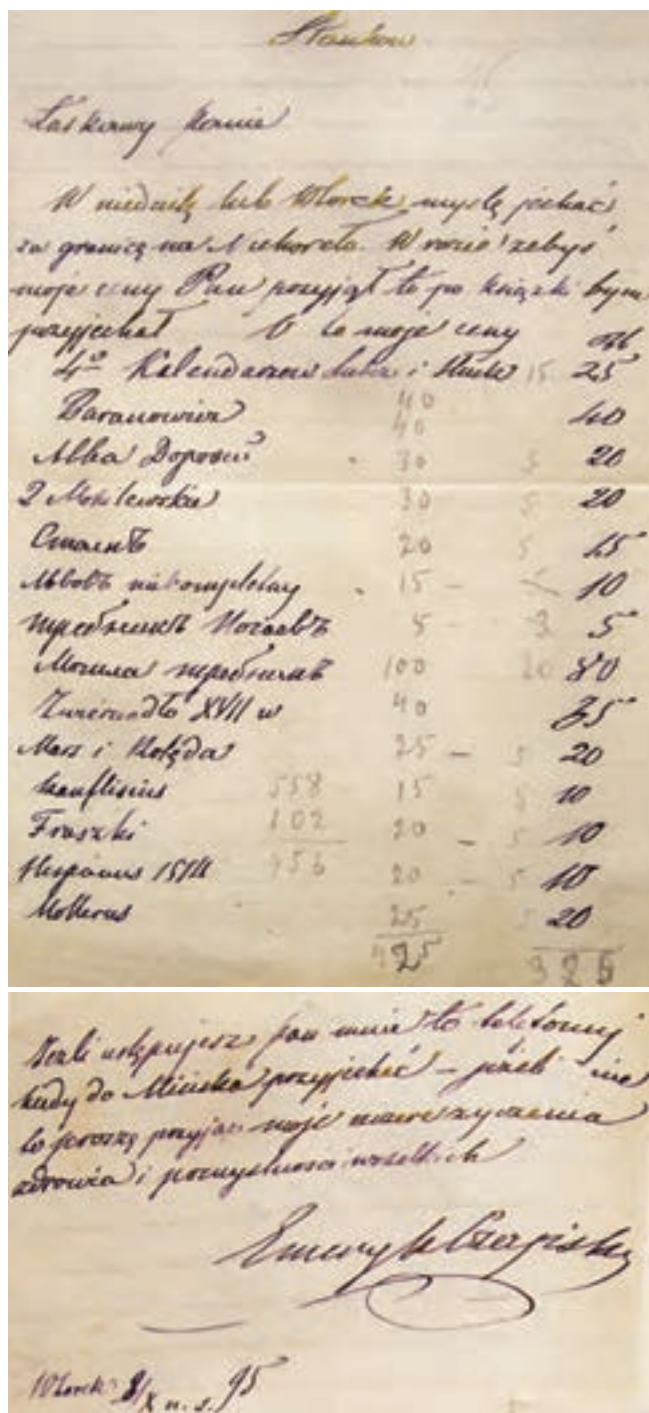 Stańkow
Łaskawy Panie
W niedzielę lub Wtorek myślę jechać
za granicę na Wierzbołów. W razie żebyś
moje ceny Pan przyjął to po książki bym
przyjechał O to moje ceny rsb
4º Kalendarzow Luba i Slucki 15 25
Baranowicz 40 40
40
Abba Doroteusz 30 5 20
2 Mohilewskie 30 5 20
Статутъ 20 5 15
Львовъ niekompletny 15 – 5 10
требникъ Почаевъ 5 – 3 5
Могила требникъ 100 20 80
Zwierciadło XVII w 40 35
Mars i Kolęda 25 – 5 20
558 15 5 10
Fraszki 102 20 – 5 10
Hispanus 1518 456 20 – 5 10
Mollerus 25 5 20
425 325
Jeżeli ustępujesz pan mnie to telefonuj
kiedy do Mińska przyjechać – jeżeli nie
to proszę przyjąć moje nowe życzenia
zdrowia i pomyślności wszelkich
Emeryk Czapski
Wtorek 8/X n. s. 95